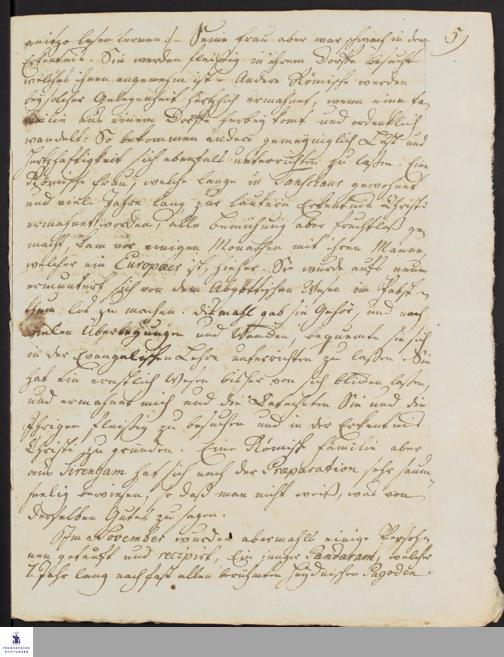 5)
lesen lernen :/- Seine Frau aber war schwach in der
Erkentniß. Sie werden fleißig in ihrem Dorffe besucht
welches ihnen angenehm ist. Andere Römische werden
bey solcher Gelegenheit hertzlich ermahnet, wenn eine fa-
milie aus einem Dorffe herbey komt und ordentlich
wandelt: So bekommen andere gemeyniglich Lust und
Hertzhafftigkeit sich ebenfals unterrichten zu laßen. Eine
Römische Frau, welche lange in gewohnet
und viele Jahre lang zur lautern Erkentniß Christi
ermahnet worden, alle Bemühung aber fruchtloß ge-
macht, kam vor einigen Monathen mit ihrem Manne
welcher ein Europaeer ist, hieher. Sie wurde aufs neue
ermuntert sich von dem Abgöttischen Wesen im Pabst-
thum loß zu machen. dißmahl gab sie Gehör, und nach
vielen Überlegungen und bequemte sie sich
in der Evangelischen Lehre unterrichten zu laßen. Sie
hat ein ernstlich Wesen bisher von sich blicken laßen,
und ermahnet mich und die Catecheten Sie und die
Ihrigen fleißig zu besuchen und in der Erkentniß
Christi zu gründen. Eine Römische familie aber
aus Sirengam hat sich nach der Praeparation sehr saum-
seelig bewiesen, so daß man nicht weiß, was von
derselben Gutes zu sagen.
Im November wurden abermahls einige Persoh-
nen getaufft und recipirt, Ein junger Pandaram, welcher
7. Jahr lang nach fast allen berühmten heydnischen Pagoden
FRANCKESCHE
STIFTUNGEN